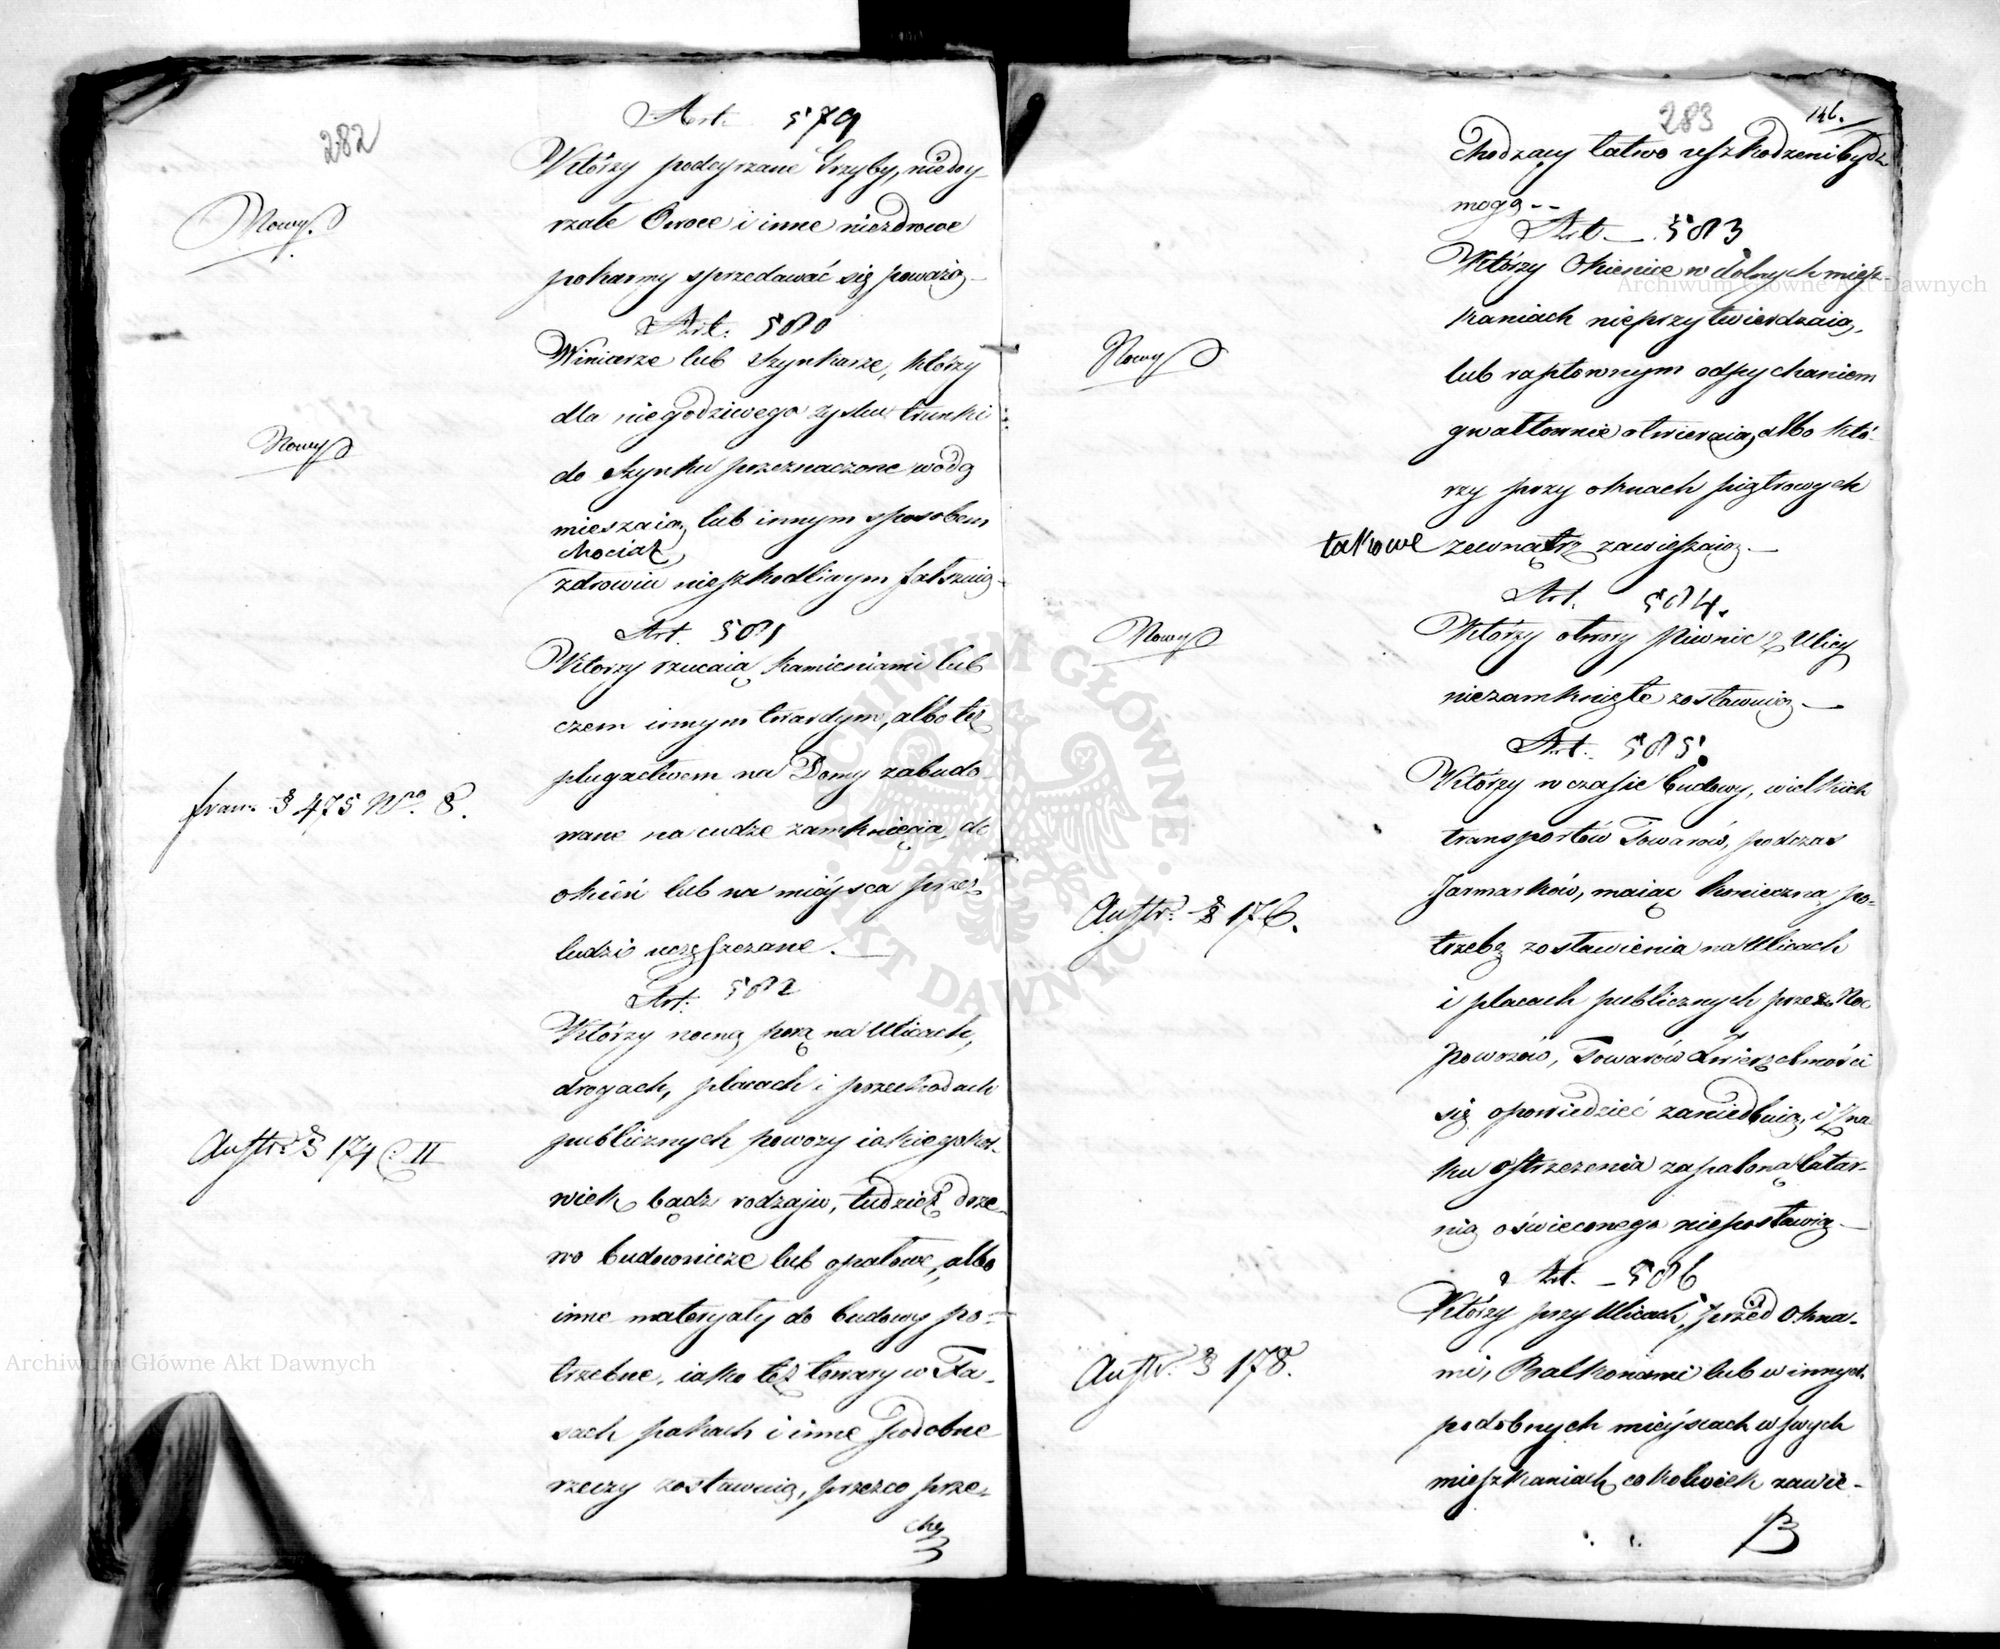 282
Art. 579
Którzy podeyrzane Grzyby, niedoy-
rzałe Owoce i inne niezdrowe
pokarmy sprzedawać się poważą
Nowy.
Art. 580
Winiarze lub Szynkarze, którzy
dla niegodziwego zysku trunki
do Szynku przeznaczone wodą
mieszaią, lub innym sposobem
chociaż
zdrowiu nieszkodliwym fałszuią
Nowy
Art. 581
Którzy rzucaią kamieniami lub
czem innym twardym, albo też
plugastwem na Domy zabudo-
wane na cudze zamknięcia, do
okien lub na mieysca przez
ludzi uczęszczane.
franc. § 475 Nro. 8.
Art. 582
Którzy nocną porą na Ulicach,
drogach, placach i przechodach
publicznych powozy iakiegokol-
wiek bądź rodzaju, tudzież drze-
wo budownicze lub opałowe, albo
inne materyały do budowy po-
trzebne, iako też towary w Fa-
sach pakach i inne podobne
rzeczy zostawuią, przezco prze-
Austr. § 174 C. II
chą
283
146.
Chodzący łatwo uszkodzeni bydz
mogą
Art. 583
Którzy Okienice w dolnych miesz-
kaniach nieprzytwierdzaią,
lub raptownym odpychaniem
gwałtownie otwieraią, albo któ-
rzy przy oknach piętrowych
takowe zewnątrz zawieszaią
Nowy
Art. 584.
Którzy otwory Piwnic z Ulicy
niezamknięte zostawuią
Nowy
Art. 585.
Którzy w czasie budowy, wielkich
transportów Towarów, podczas
Jarmarków, maiąc konieczną po-
trzebę zostawienia na Ulicach
i placach publicznych przez Noc
Powozów, Towarów Zwierzchności
się opowiedzieć zaniedbuią, i Zna-
ku ostrzeżenia zapaloną latar-
nią oświeconego niepostawią
Austr. § 176.
Art. 586
Którzy przy Ulicach, przed Okna-
mi, Balkonami lub w innych
podobnych mieyscach w swych
mieszkaniach cokolwiek zawie-
Austr. § 178.
Archiwum Główne Akt Dawnych
Archiwum Główne Akt Dawnych
ARCHIWUM GŁÓWNE AKT DAWNYCH